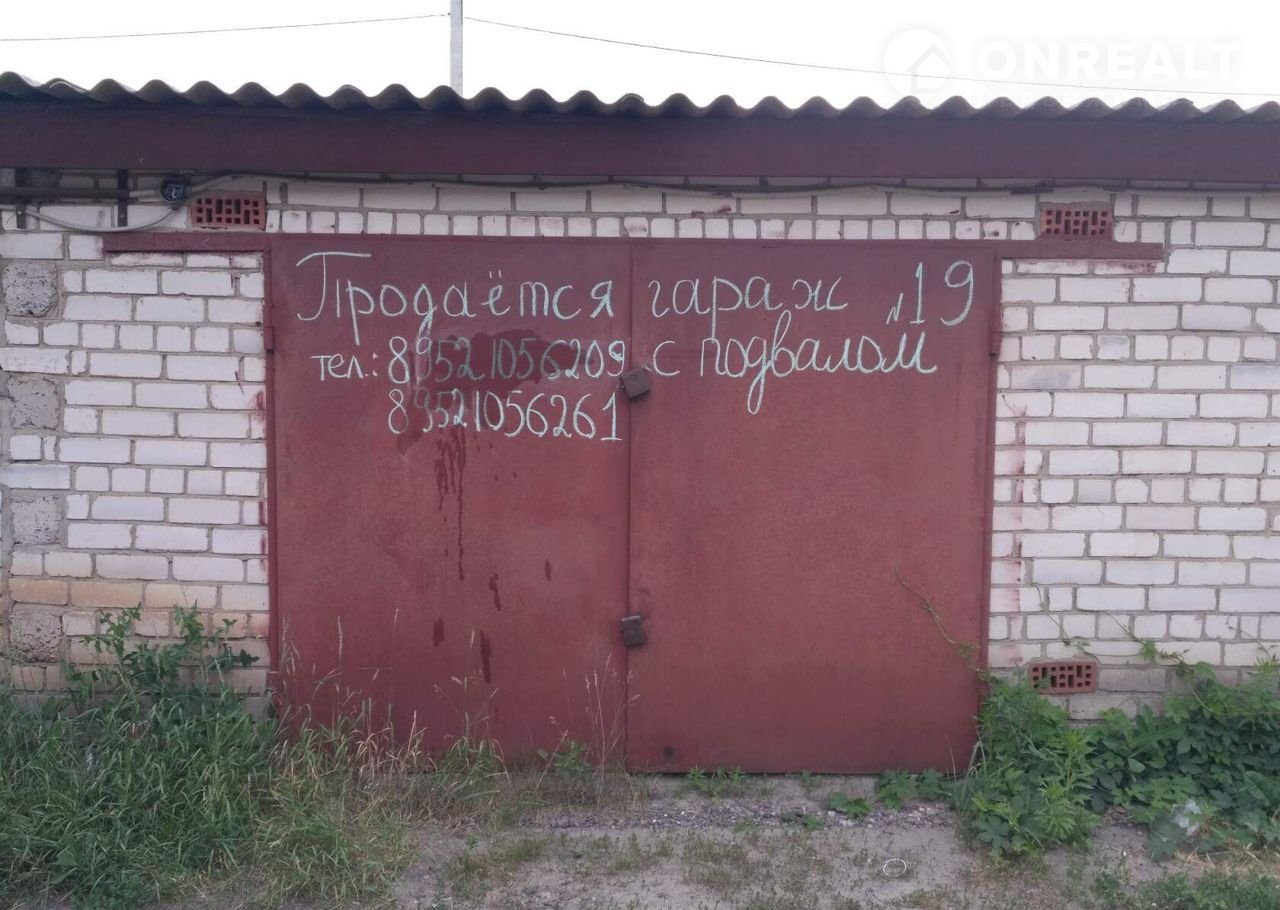 ONREALT
Продаётся гараж №19
тел.: 89521056209 с подвалом
89521056261